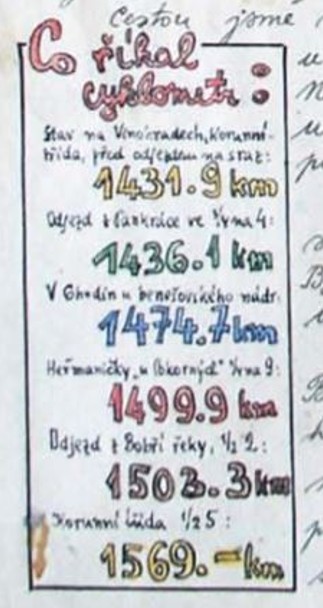 Cestou jsme
Co říkal
cyklometr:
Stav na Vinohradech, Korunní
třída, před odjezdem na sraz:
1431.9 km
Odjezd z Pankráce ve ¾ na 4:
1436.1 km
V Chodín u benešovského nádr.
1474.7 km
Heřmaničky „u Pokorných" na 9:
1499.9 km
Odjezd z Bobří řeky, ½ 2:
1503.3 km
Korunní třída ½ 5:
1569.– km